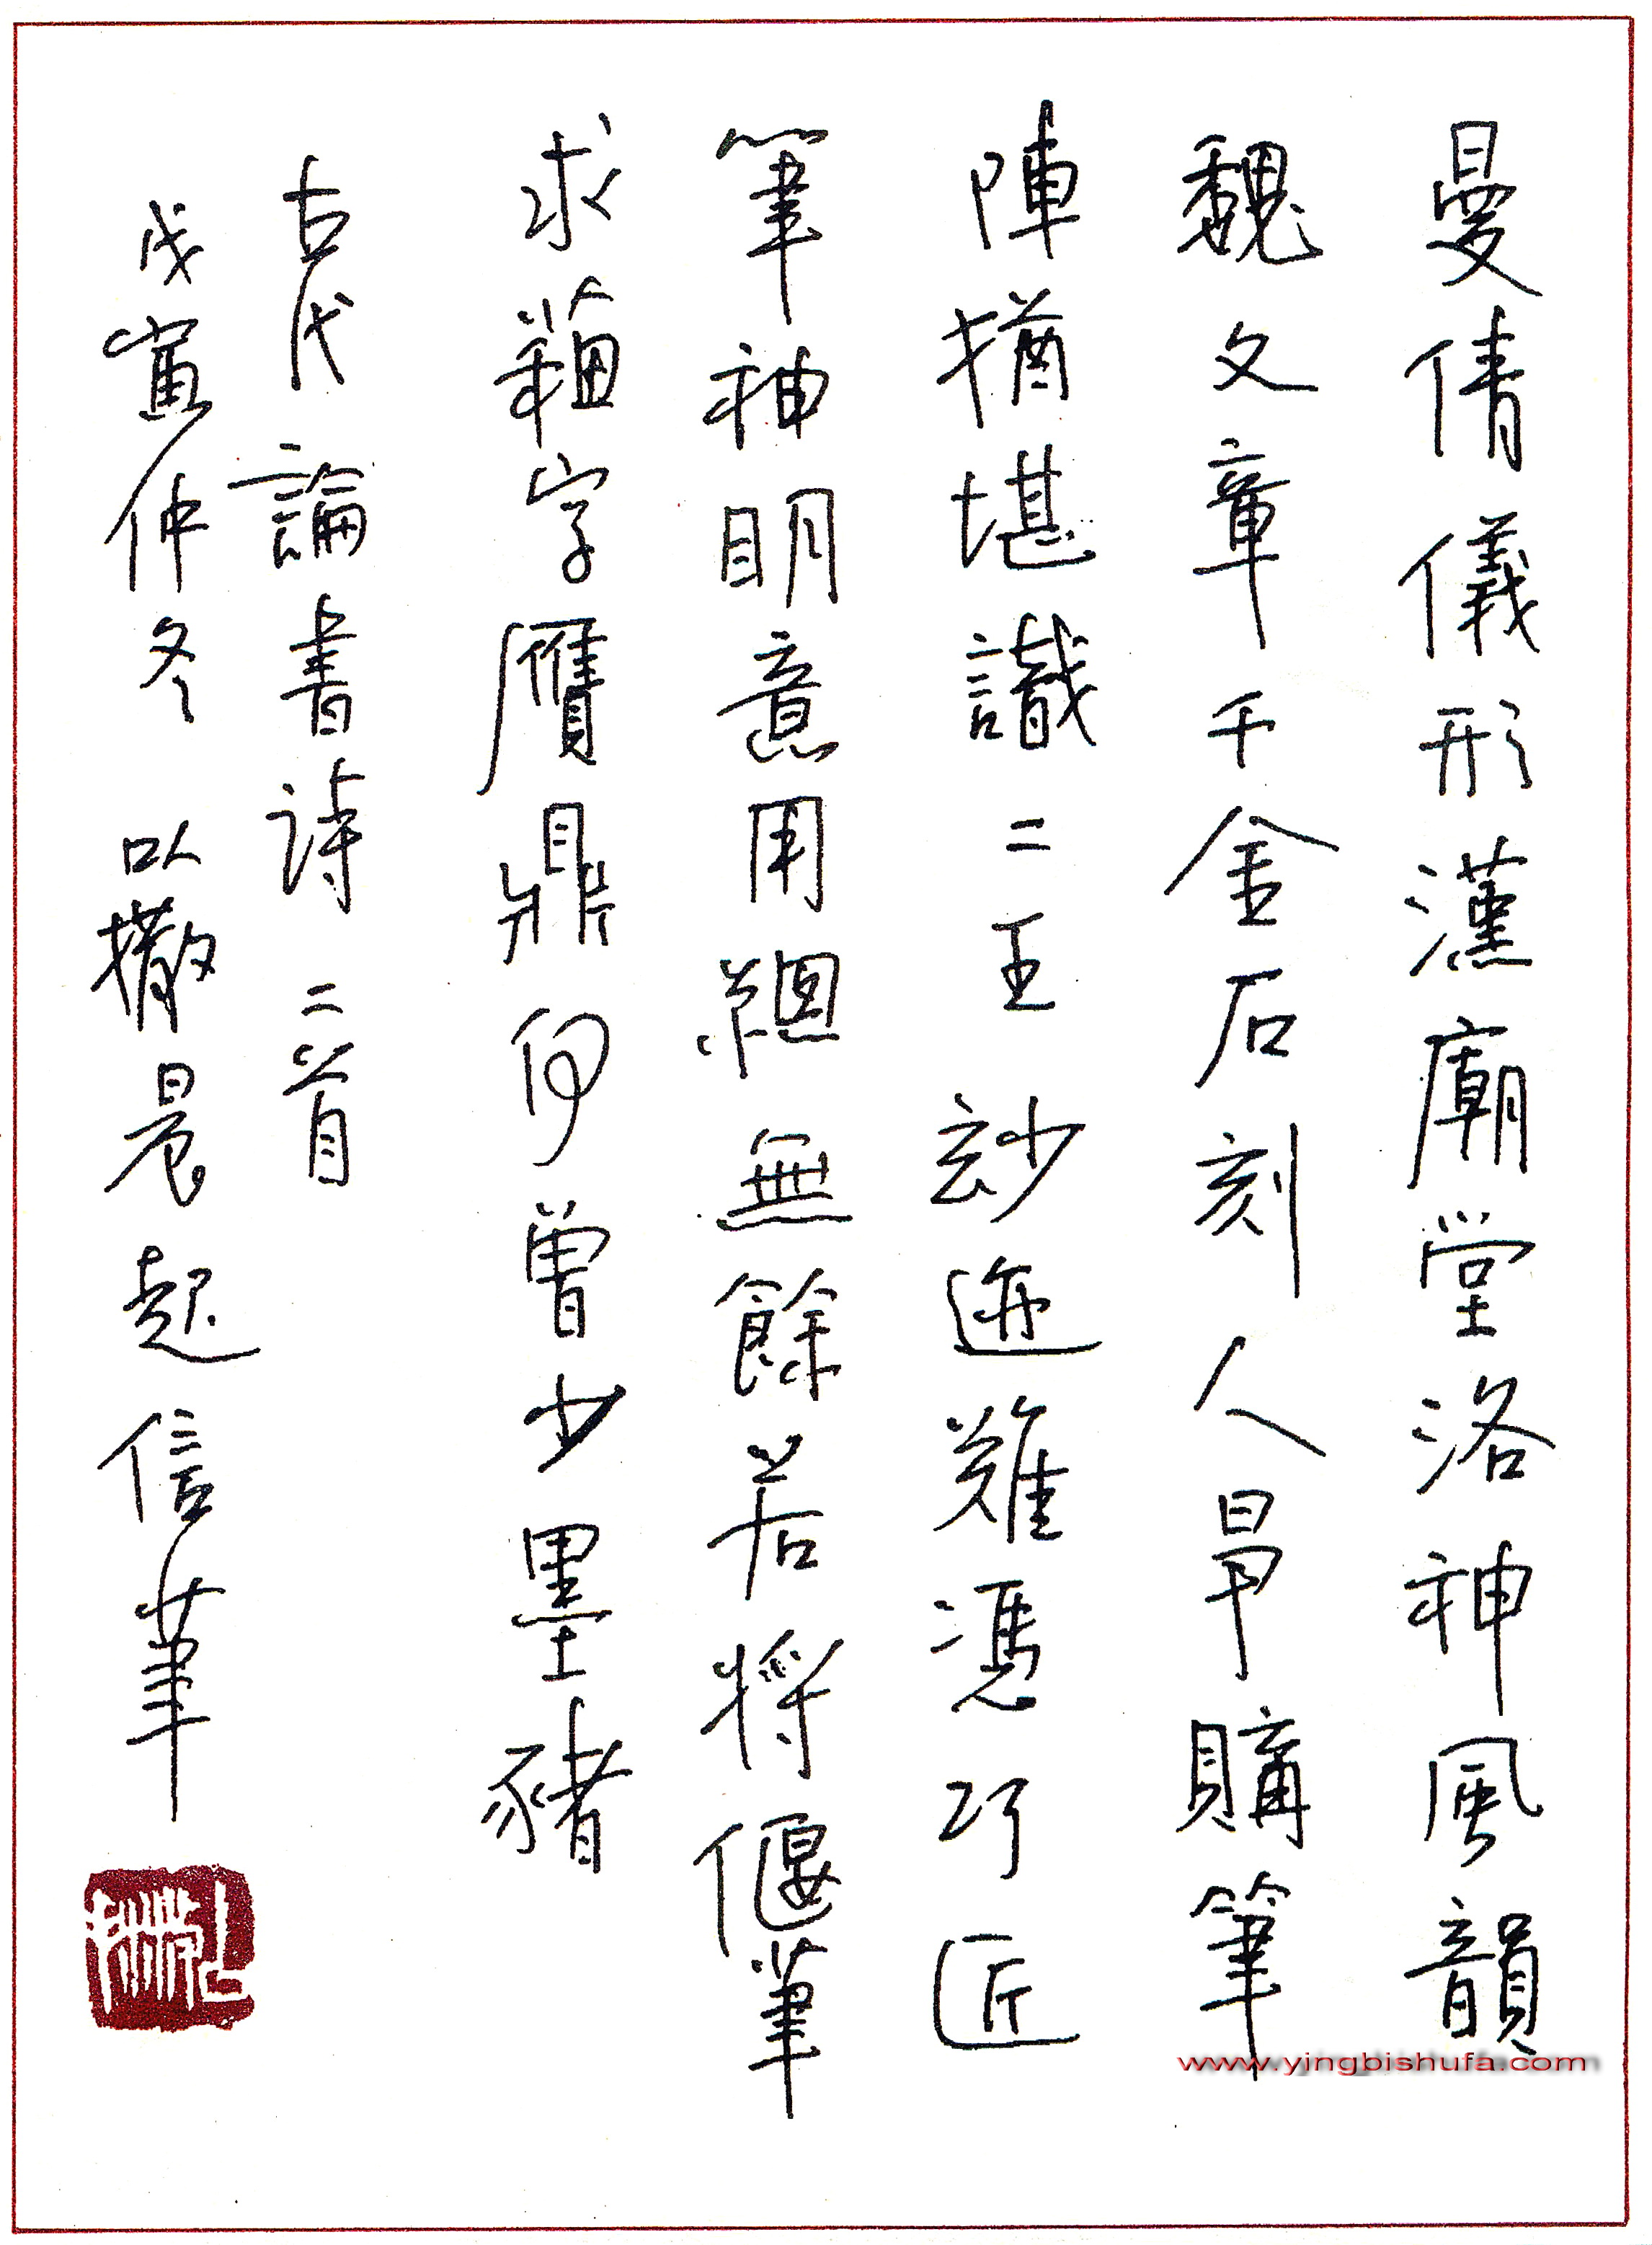 曼倩儀形漢廟堂洛神風韻
魏文章千金石刻人早購筆
陣猶堪識二王玅迹難憑巧匠
筆神明意用總無餘若將偃筆
求蘓字贋鼎何曾少墨豬
古代論書詩二首
戊寅仲冬以撒晨起信筆
www.yingbishufa.com